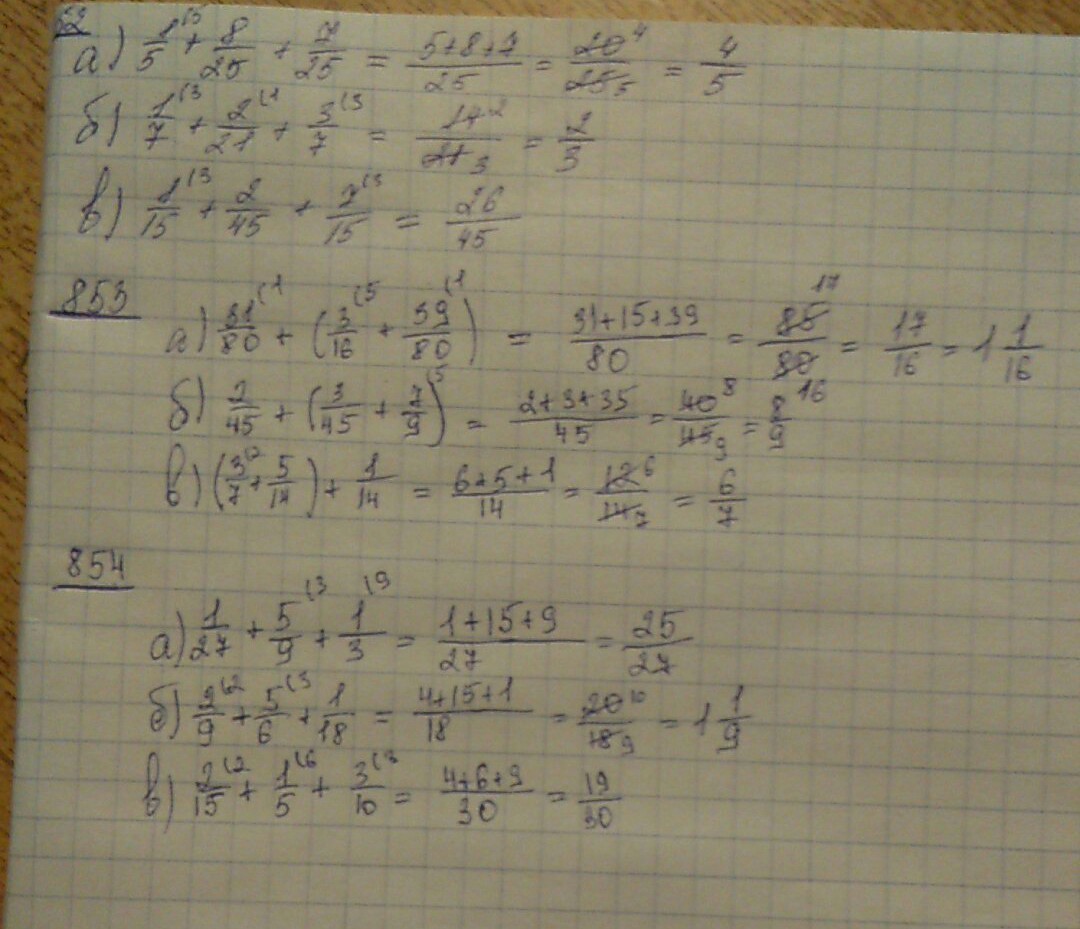 52
а) 1/5 (5 + 8/25 + 7/25 = 5+8+7/25 = 20 4/25 5 = 4/5
б) 1/7 (3 + 2/21 (1 + 3/7 (3 = 14 2/21 3 = 2/3
в) 1/15 (3 + 2/45 + 7/15 (3 = 26/45
853
а) 31/80 (1 + (3/16 (5 + 39/80 (1) = 31+15+39/80 = 85 17/80 = 17/16 = 1 1/16
б) 2/45 + (3/45 + 7/9) 5 = 2+3+35/45 = 40 8/45 9 = 8/9 16
в) (3/7 (2 + 5/14) + 1/14 = 6+5+1/14 = 12 6/14 7 = 6/7
854
а) 1/27 + 5/9 (3 + 1/3 (9 = 1+15+9/27 = 25/27
б) 2/9 (2 + 5/6 (3 + 1/18 = 4+15+1/18 = 20 10/18 9 = 1 1/9
в) 2/15 (2 + 1/5 (6 + 3/10 (3 = 4+6+9/30 = 19/30